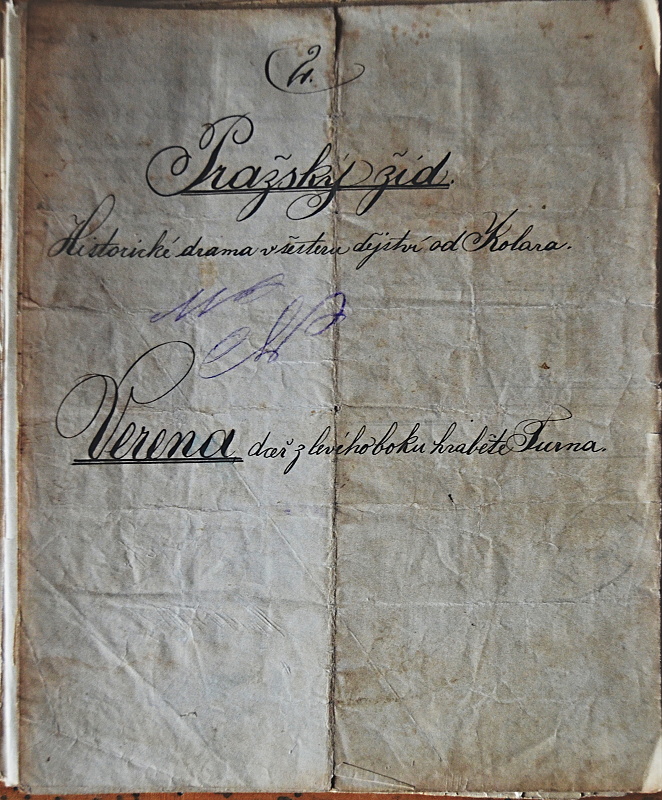 2.
Pražský žid.
Historické drama v šesteru dějství od Kolara.
Verena dceř z levího boku hraběte Turna.